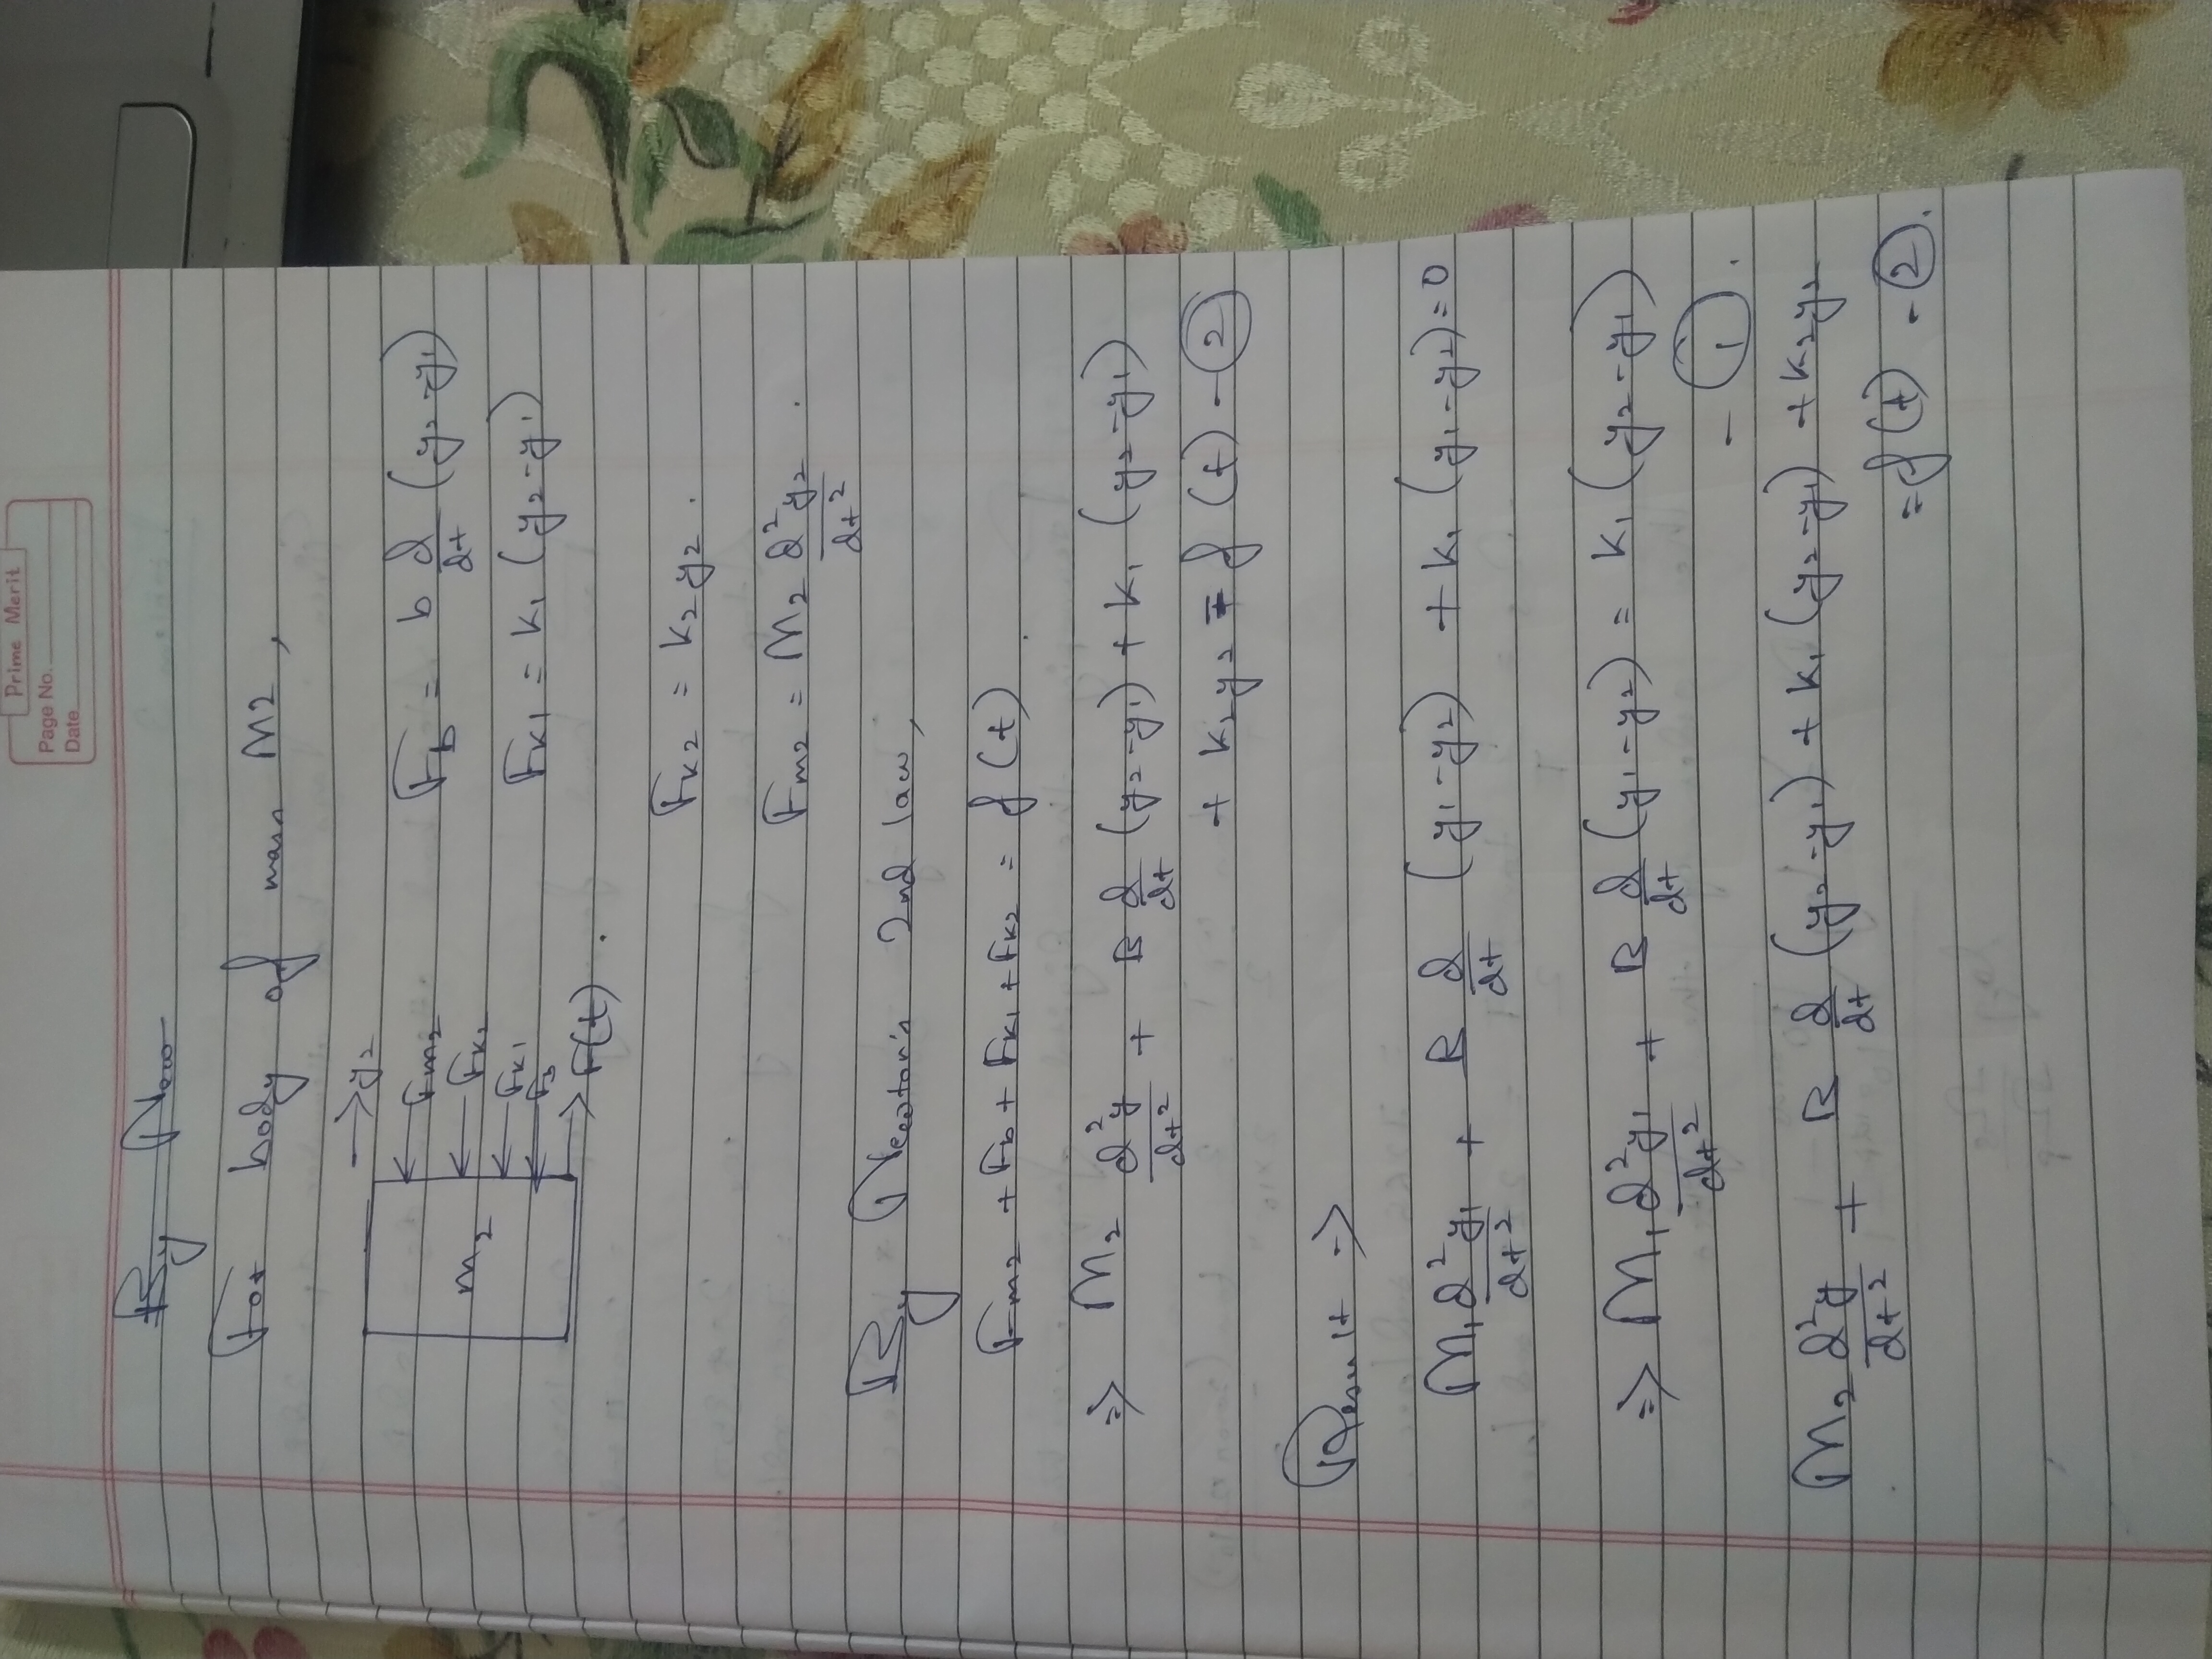 Prime Merit
Page No.
Date
By New
For body of mass M2,
→ y₂
Fm₂
m₂
Fk₂
Fk₁
Fb
F(t).
Fb = b d/dt (y₂-y₁)
Fk₁ = k₁ (y₂-y₁)
Fk₂ = k₂ y₂.
Fm₂ = M₂ d²y₂/dt².
By Newton's 2nd law,
Fm₂ + Fb + Fk₁ + Fk₂ = f(t).
⇒ M₂ d²y/dt² + B d/dt (y₂-y₁) + k₁ (y₂-y₁)
+ k₂y₂ = f(t) - ②
Result →
M₁ d²y₁/dt² + B d/dt (y₁-y₂) + k₁ (y₁-y₂) = 0
⇒ M₁ d²y₁/dt² + B d/dt (y₁-y₂) = k₁ (y₂-y₁)
- ①.
M₂ d²y/dt² + B d/dt (y₂-y₁) + k₁ (y₂-y₁) + k₂y₂
= f(t) - ②.